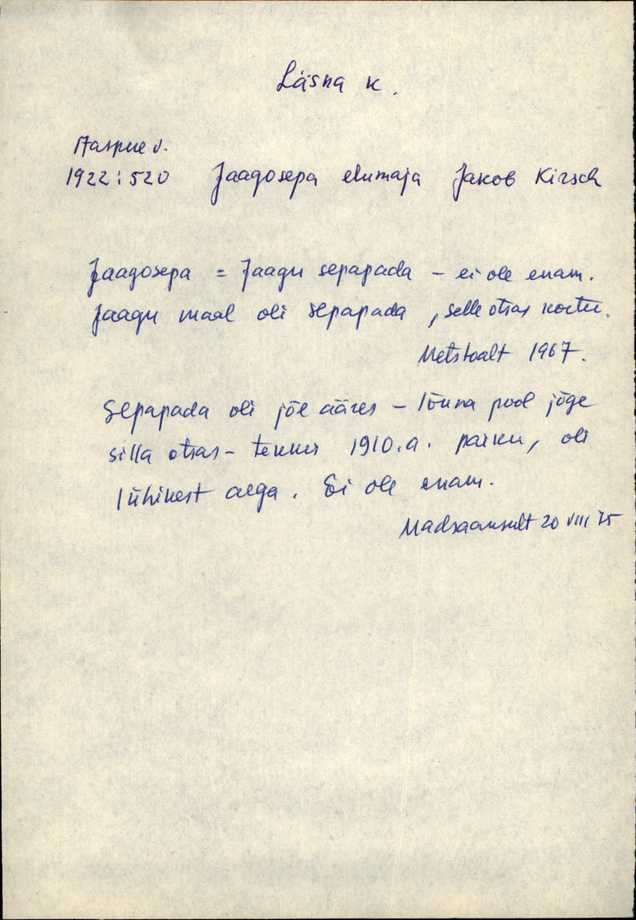 Läsna k.
Aaspere v.
1922:520 Jaagosepa elumaja Jakob Kirsch
Jaagosepa = Jaagu sepapada – ei ole enam.
Jaagu maal oli sepapada, selle otsas
Metstaalt 1967.
Sepapada oli jõe ääres – lõuna pool jõge
silla otsas – tekkis 1910.a. paiku, oli
lühikest aega. Ei ole enam.
20 VIII 75